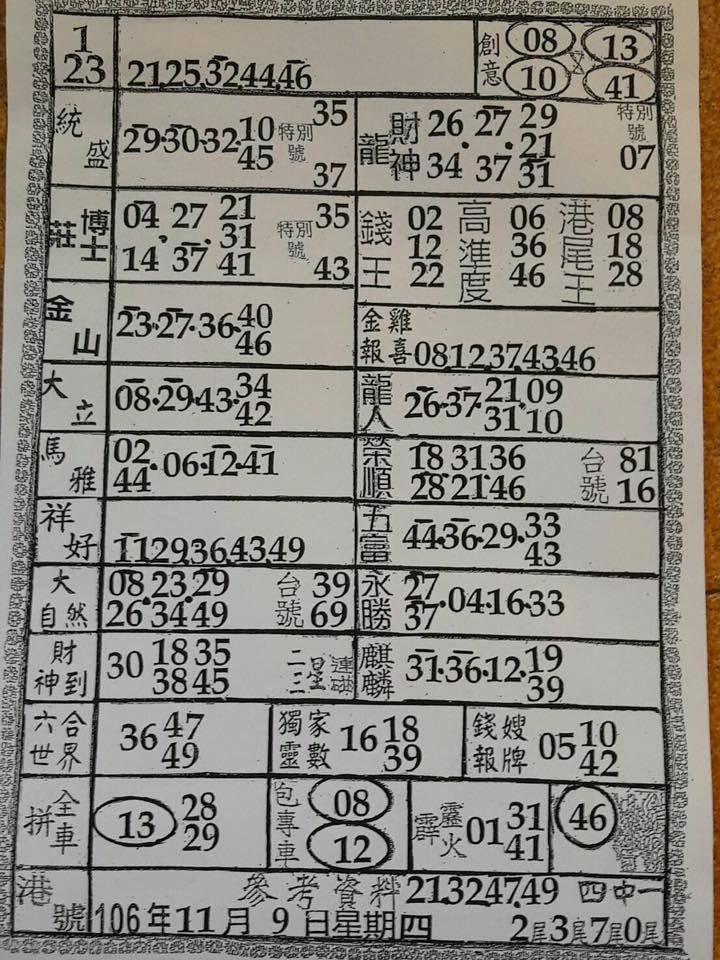 1
23
21.25.32.44.46
創意
08 × 13
10 41
統盛
29.30.32.10
45
特別號
35
37
財神龍
26 27 29
21
34 37 31
特別號
07
博士莊
04 27 21
31
14 37 41
特別號
35
43
錢王
02
12
22
高準度
06
36
46
港尾王
08
18
28
金山
23.27.36.40
46
金雞報喜
08.12.37.43.46
大立
08.29.43.34
42
龍人
26.37.21.09
31.10
馬雅
02
44.06.12.41
榮順
18 31 36
28 21 46
台號
81
16
祥好
11.29.36.43.49
五富
44.36.29.33
43
大自然
08.23.29
26.34.49
台號
39
69
永勝
27
37.04.16.33
財神到
30 18 35
38 45
二三星連碰
麒麟
31.36.12.19
39
六合世界
36 47
49
獨家靈數
16 18
39
錢嫂報牌
05 10
42
全車拼
13 28
29
包專車
08
12
霹靂火
01 31
41
46
港號
參考資料 21.32.47.49 四中一
106年11月9日星期四 2尾3尾7尾0尾